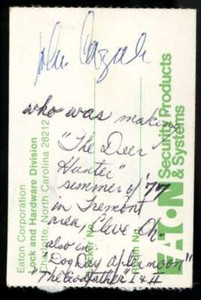 John Cazale
who was making
"The Deer
Hunter"
summer of '77
in Tremont
area, Cleve, Oh
also in
"Dog Day Afternoon"
"The Godfather I & II
Eaton Corporation
Lock and Hardware Division
North Carolina 28212
EATON
Security Products
& Systems